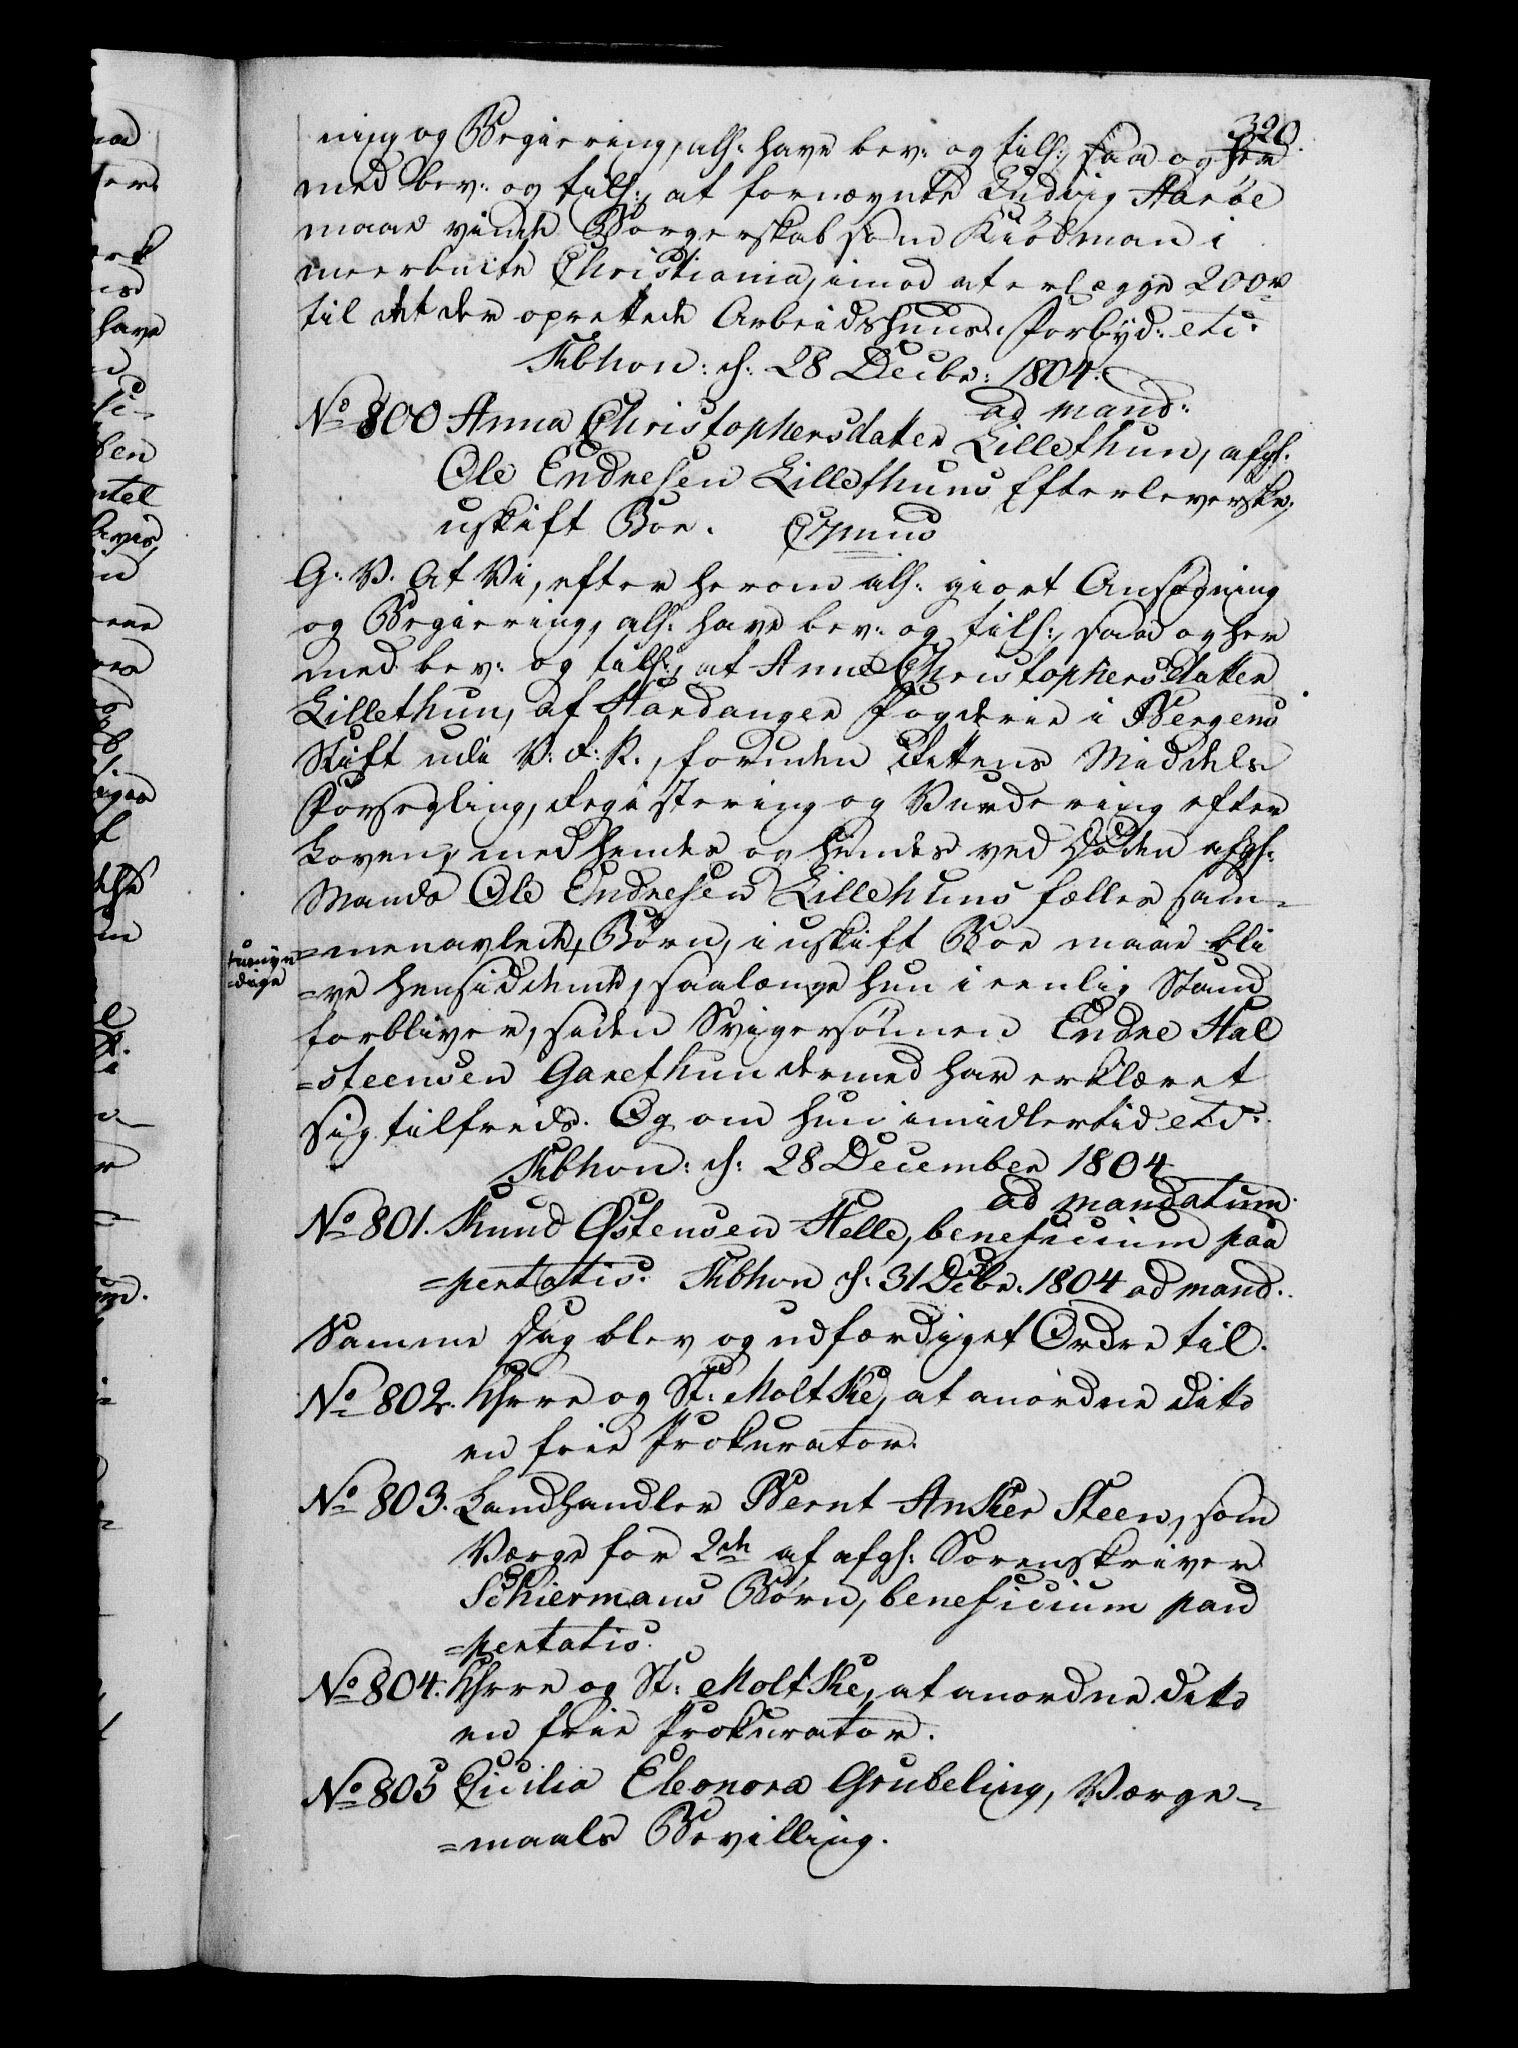 320.
ning og Begiering, als: have bev: og tills:, saa og her
med bev: og tills:, at fornævnte Ludvig Aarøe
maae vinde Borgerskab som Kiødman i
meerbulte Christiania, imod at erlægge 200 rd
til det der oprettede Arbeidshuus. Forbyd: etc.
Kbhvn: d: 28 Decbr: 1804.
ad mand:
No 800 Anna Christophersdatter Lillethun, afgl:
Ole Endresen Lillethuns Efterleverske,
uskift Boe.
G: V. At Vi, efter herom als: giort Ansøgning
og Begiering, als: have bev: og tills:, saa og her
med bev: og tills:, at Anna Christophersdatter
Lillethun, af Hardanger Fogderie i Bergens
Stift udi V: R: N:, foruden Rettens Middels
Forsegling, Registering og Vurdering efter
Loven, med hendes og hendes ved Døden afgl:
Mands Ole Endresen Lillehuns fælles sam-
=menavlede, Børn, i uskift Boe maae bli
tumyn
dige
=ve hensiddende, saalænge hun i eenlig Stand
forbliver, siden Svigersønnen Endre Hal
=steensen Garethun dermed har erklæret
sig tilfreds. Og om hun imidlertid etc.
Kbhvn: d: 28 December 1804
ad mandatum.
No 801. Knud Østensen Helle, beneficium pau
=pertatis. Kbhvn d: 31 Decbr: 1804 ad mand:
Samme Dag blev og udfærdiget Ordre til.
No 802. Hrre og St: Moltke, at anordne dito
en frie Prokurator.
No 803. Landhandler Bernt Anker Steen, som
Værge for 2de af afgl: Sorenskriver
Schiermans Børn, beneficium pau
=pertatis.
No 804. Hrre og St: Moltke, at anordne dito
en frie Prokurator.
No 805 Cicilia Eleonora Grubeling, Værge-
=maals Bevilling.